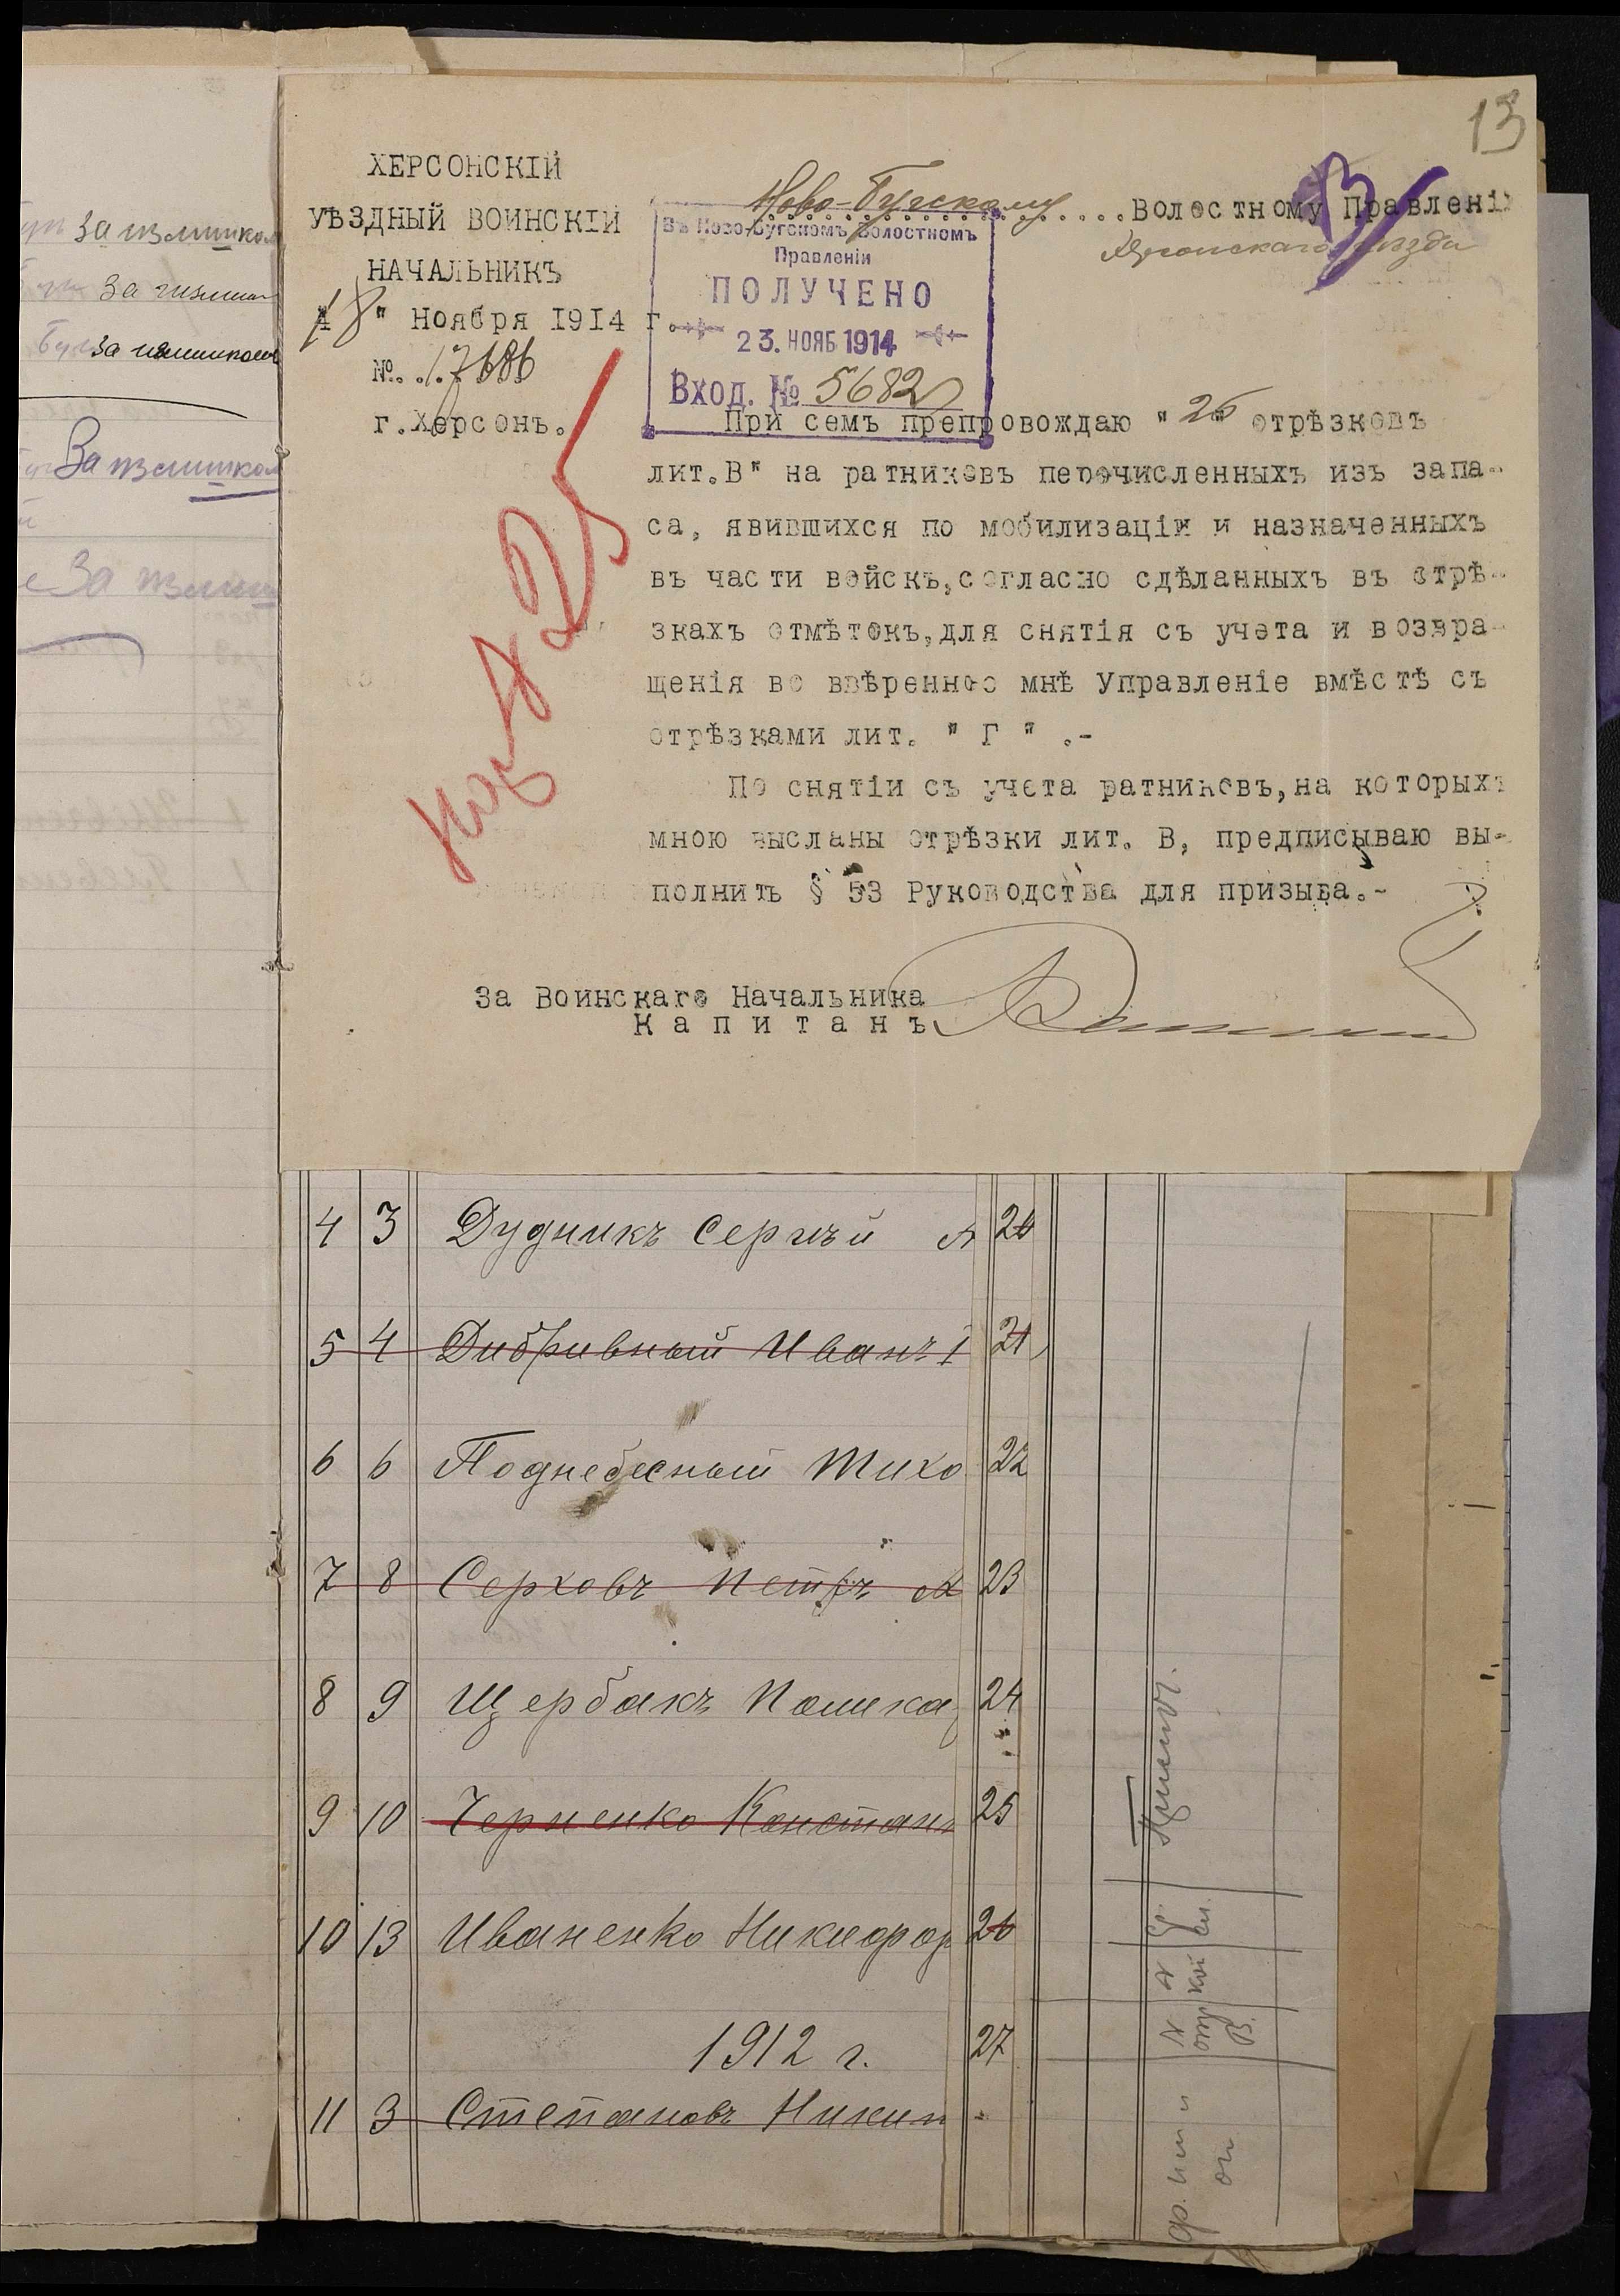 13
ХЕРСОНСКІЙ
УѢЗДНЫЙ ВОИНСКІЙ
НАЧАЛЬНИКЪ
18" Ноября 1914 г.
№. .17686
г.Херсонъ.
Ново-Бугскому Волостному Правленію
Херсонскаго уѣзда
Въ Ново-Бугскомъ Волостномъ
Правленіи
ПОЛУЧЕНО
23. НОЯБ 1914
Вход. № 5682
При семъ препровождаю " 25 " отрѣзковъ
лит.В" на ратниковъ перечисленныхъ изъ запа-
са, явившихся по мобилизаціи и назначенныхъ
въ части войскъ,согласно сдѣланныхъ въ отрѣ-
зкахъ отмѣтокъ,для снятія съ учета и возвра-
щенія во ввѣренное мнѣ Управленіе вмѣстѣ съ
отрѣзками лит. " Г " .-
По снятіи съ учета ратниковъ,на которыхъ
мною высланы отрѣзки лит. В, предписываю вы-
полнить § 53 Руководства для призыва.-
За Воинскаго Начальника
Капитанъ
За излишком
За излишком
За излишком
За излишком
4 3 Дудникъ Сергѣй А 20
5 4 Дибривный Иванъ І 21
6 6 Поднебесный Тихо 22
7 8 Серховъ Петръ А 23
8 9 Щербакъ Поликар 24
9 10 Черненко Констан 25
10 13 Иваненко Никифор 26
1912 г. 27
11 3 Степановъ Никит